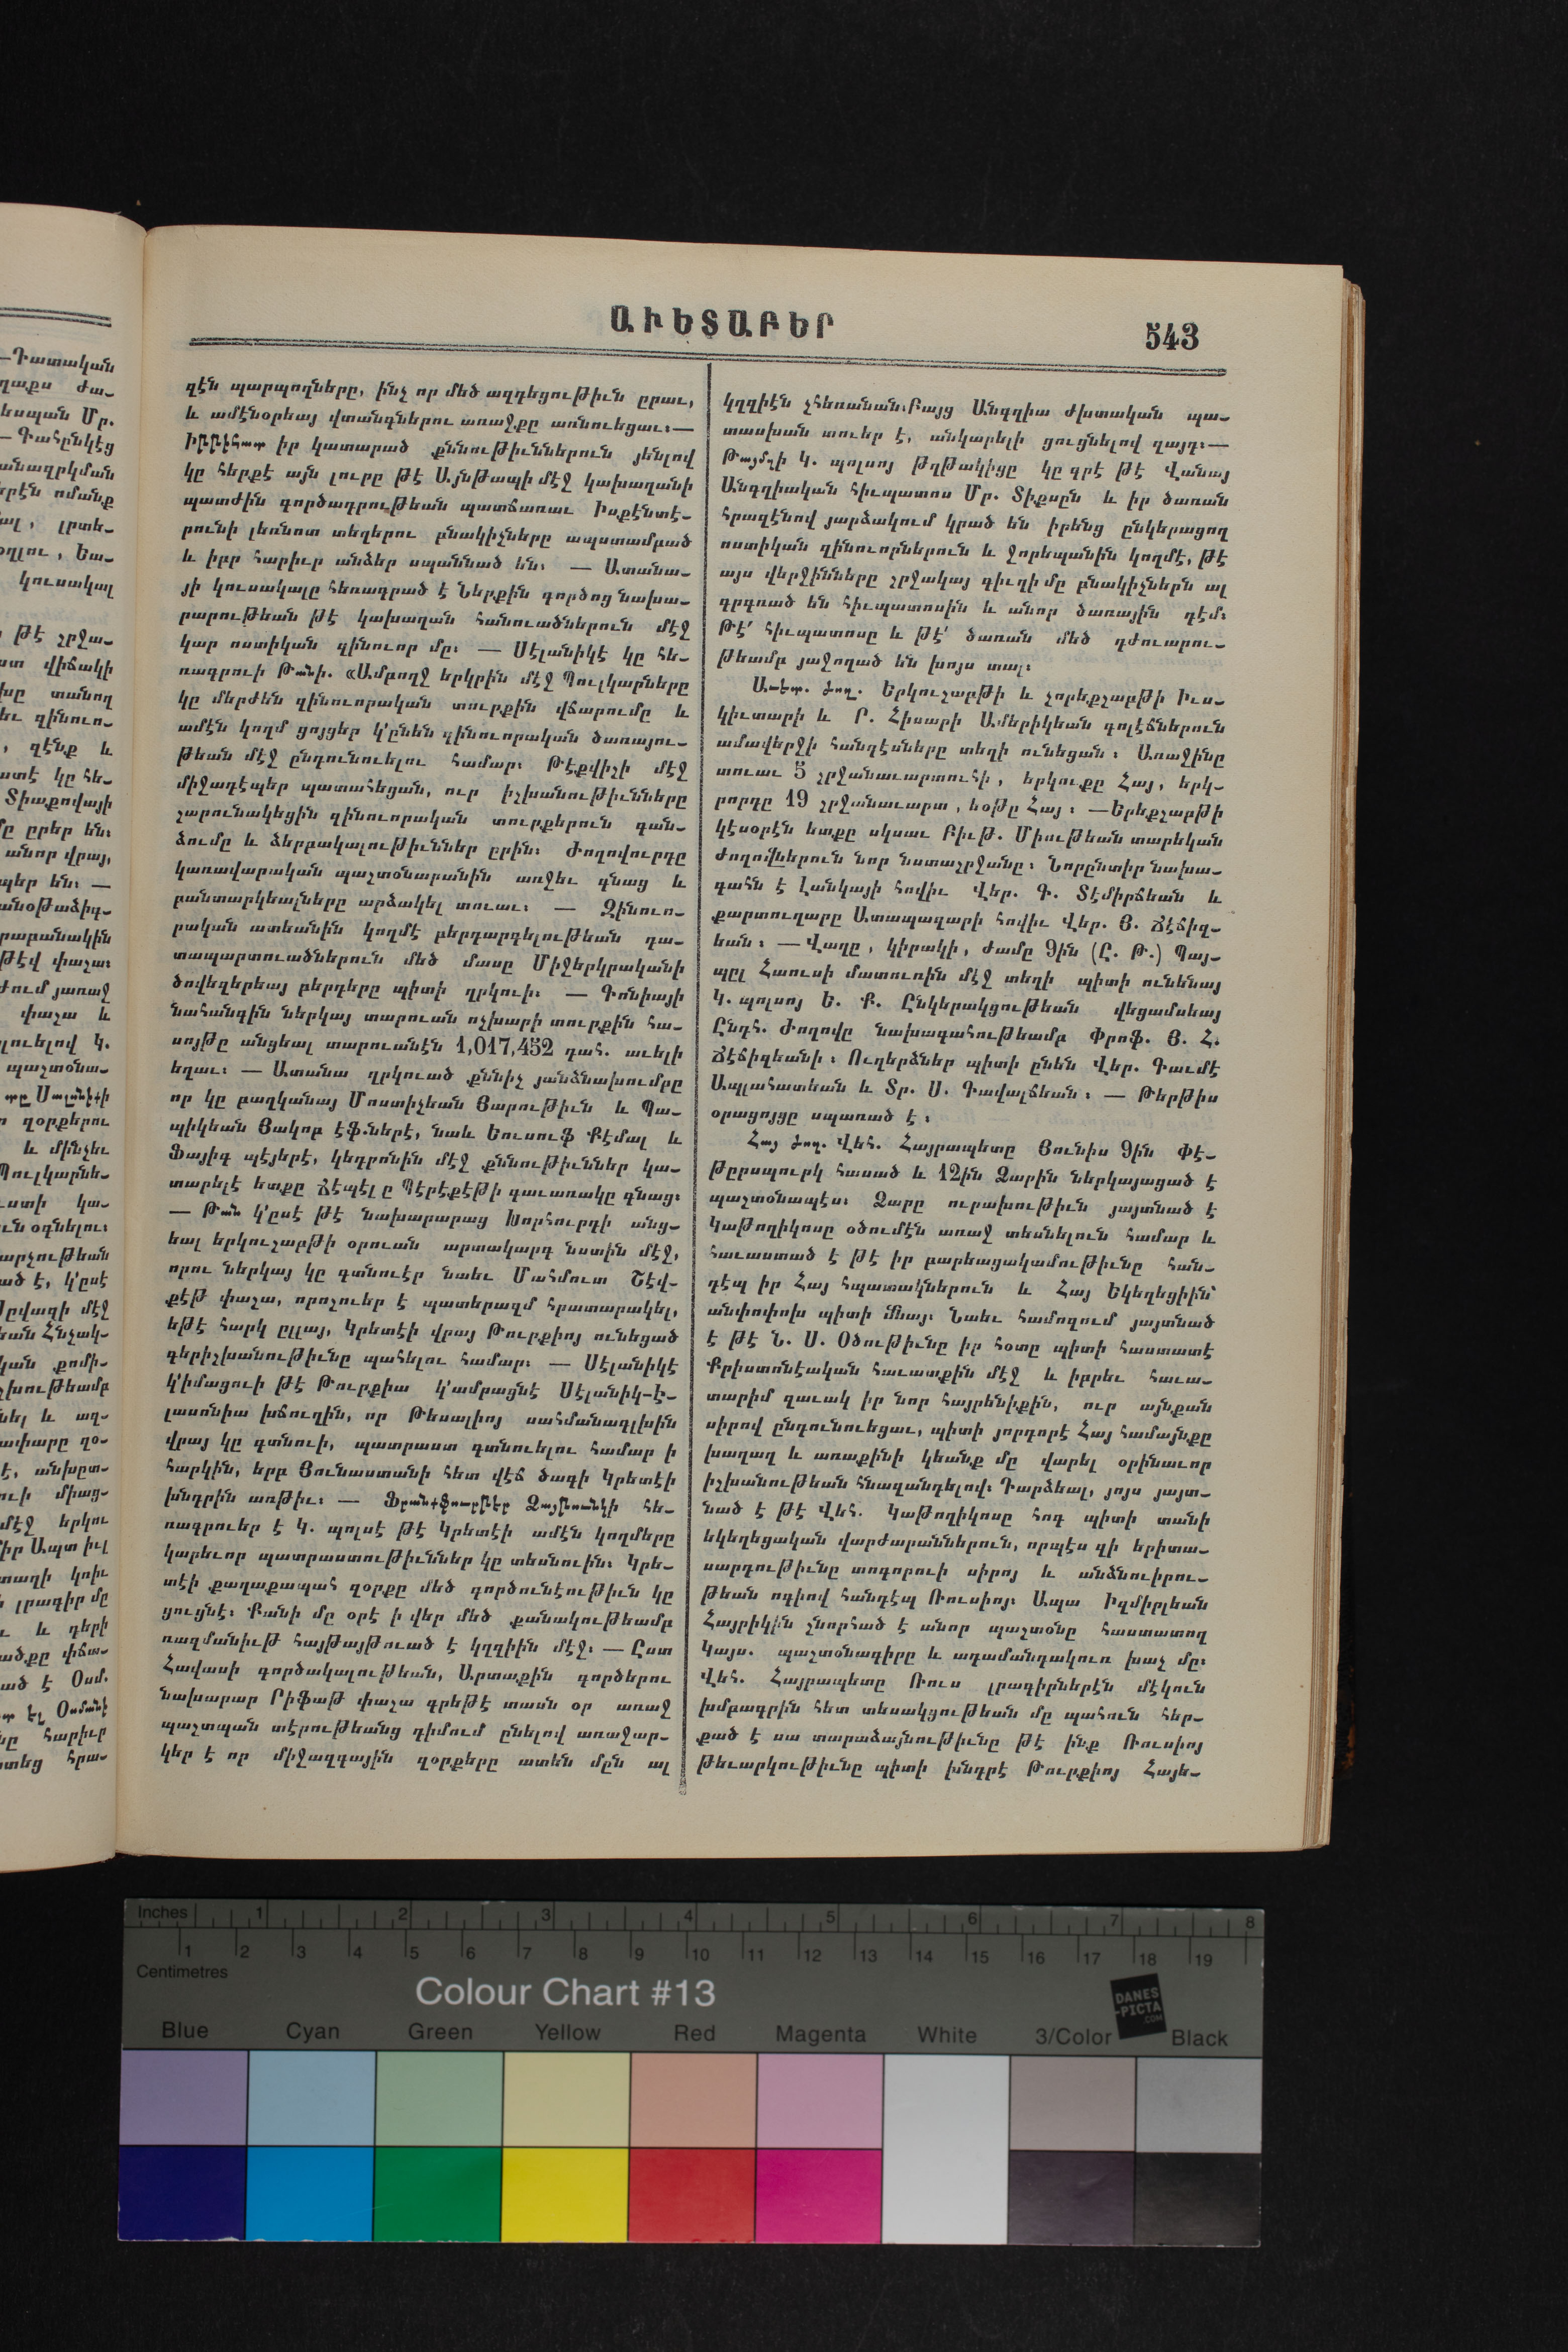 ԱՒԵՏԱԲԵՐ
543
զէն պարպողները, ինչ որ մեծ ազդեցութիւն ըրաւ,
և ամէնօրեայ վտանգներու առաջքը առնուեցաւ։—
Իթթիհատ իր կատարած քննութիւններուն յենլով
կը հերքէ այն լուրը թէ Այնթապի մէջ կախաղանի
պատժին գործադրութեան պատճառաւ Իսքէնտէ-
րունի լեռնոտ տեղերու բնակիչները ապստամբած
և իբր հարիւր անձեր սպաննած են։ — Ատանա-
յի կուսակալը հեռագրած է Ներքին գործոց նախա-
րարութեան թէ կախաղան հանուածներուն մէջ
կար ոստիկան զինուոր մը։ — Սէլանիկէ կը հե-
ռագրուի Թանի. «Ամբողջ երկրին մէջ Պուլկարները
կը մերժեն զինուորական տուրքին վճարումը և
ամէն կողմ ցոյցեր կ'ընեն զինուորական ծառայու-
թեան մէջ ընդունուելու համար։ Թէքվիչի մէջ
միջադէպեր պատահեցան, ուր իշխանութիւնները
շարունակեցին զինուորական տուրքերուն գան-
ձումը և ձերբակալութիւններ ըրին։ Ժողովուրդը
կառավարական պաշտօնարանին առջեւ գնաց և
բանտարկեալները արձակել տուաւ։ — Զինուո-
րական ատեանին կողմէ բերդարգելութեան դա-
տապարտուածներուն մեծ մասը Միջերկրականի
ծովեզերեայ բերդերը պիտի ղրկուի։ — Գոնիայի
նահանգին ներկայ տարուան ոչխարի տուրքին հա-
սոյթը անցեալ տարուանէն 1,017,452 դահ. աւելի
եղաւ։ — Ատանա ղրկուած քննիչ յանձնախումբը
որ կը բաղկանայ Մոստիչեան Յարութիւն և Պա-
պիկեան Յակոբ էֆ.ներէ, նաև Եուսուֆ Քէմալ և
Ֆայիգ պէյերէ, կեդրոնին մէջ քննութիւններ կա-
տարելէ ետքը Ճէպէլ ը Պէրէքէթի գաւառակը գնաց։
— Թան կ'ըսէ թէ նախարարաց Խորհուրդի անց-
եալ երկուշաբթի օրուան արտակարգ նստին մէջ,
որու ներկայ կը գտնուէր նաեւ Մահմուտ Շէվ-
քէթ փաշա, որոշուեր է պատերազմ հրատարակել,
եթէ հարկ ըլլայ, Կրետէի վրայ Թուրքիոյ ունեցած
գերիշխանութիւնը պահելու համար։ — Սէլանիկէ
կ'իմացուի թէ Թուրքիա կ'ամրացնէ Սէլանիկ-Է-
լասոնիա խճուղին, որ Թեսալիոյ սահմանագլխին
վրայ կը գտնուի, պատրաստ գտնուելու համար ի
հարկին, երբ Յունաստանի հետ վէճ ծագի Կրետէի
խնդրին առթիւ։ — Ֆրանքֆուրթեր Զայթունկի հե-
ռագրուեր է Կ. պոլսէ թէ Կրետէի ամէն կողմերը
կարեւոր պատրաստութիւններ կը տեսնուին։ Կրե-
տէի քաղաքապահ զօրքը մեծ գործունէութիւն կը
ցուցնէ։ Քանի մը օրէ ի վեր մեծ քանակութեամբ
ռազմանիւթ հայթայթուած է կղզիին մէջ։ — Ըստ
Հավասի գործակալութեան, Արտաքին գործերու
նախարար Րիֆաթ փաշա գրեթէ տասն օր առաջ
պաշտպան տէրութեանց դիմում ընելով առաջար-
կեր է որ միջազգային զօրքերը ատեն մըն ալ
կղզիէն չհեռանան։ Բայց Անգղիա ժխտական պա-
տասխան տուեր է, անկարելի ցուցնելով զայդ։—
Թայմզի Կ. պոլսոյ թղթակիցը կը գրէ թէ Վանայ
Անգղիական հիւպատոս Մր. Տիքսըն և իր ծառան
հրազէնով յարձակում կրած են իրենց ընկերացող
ոստիկան զինուորներուն և ջորեպանին կողմէ, թէ
այս վերջինները շրջակայ գիւղի մը բնակիչներն ալ
գրգռած են հիւպատոսին և անոր ծառային դէմ։
Թէ՛ հիւպատոսը և թէ՛ ծառան մեծ դժուարու-
թեամբ յաջողած են խոյս տալ։
Աւետ. ժող. Երկուշաբթի և չորեքշաբթի Իւս-
կիւտարի և Ր. Հիսարի Ամերիկեան գոլէճներուն
ամավերջի հանդէսները տեղի ունեցան։ Առաջինը
տուաւ 5 շրջանաւարտուհի, երկուքը Հայ, երկ-
րորդը 19 շրջանաւարտ, եօթը Հայ։ —Երեքշաբթի
կէսօրէն ետքը սկսաւ Բիւթ. Միութեան տարեկան
ժողովներուն նոր նստաշրջանը։ Նորընտիր նախա-
գահն է Լանկայի հովիւ Վեր. Գ. Տէմիրճեան և
քարտուղարը Ատապազարի հովիւ Վեր. Յ. Ճէճիզ-
եան։ — Վաղը, կիրակի, ժամը 9ին (Ը. Թ.) Պայ-
պըլ Հաուսի մատուռին մէջ տեղի պիտի ունենայ
Կ. պոլսոյ Ե. Ք. Ընկերակցութեան վեցամսեայ
Ընդհ. Ժողովը նախագահութեամբ Փրոֆ. Յ. Հ.
Ճէճիզեանի։ Ուղերձներ պիտի ընեն Վեր. Գաւմէ
Ապլահատեան և Տր. Ս. Գավալճեան։ — Թերթիս
օրացոյցը սպառած է։
Հայ ժող. Վեհ. Հայրապետը Յունիս 9ին Փէ-
թըրսպուրկ հասած և 12ին Ցարին ներկայացած է
պաշտօնապէս։ Ցարը ուրախութիւն յայտնած է
Կաթողիկոսը օծումէն առաջ տեսնելուն համար և
հաւաստած է թէ իր բարեացակամութիւնը հան-
դէպ իր Հայ հպատակներուն և Հայ Եկեղեցիին՝
անփոփոխ պիտի մնայ։ Նաեւ համոզում յայտնած
է թէ Ն. Ս. Օծութիւնը իր հօտը պիտի հաստատէ
Քրիստոնէական հաւատքին մէջ և իբրեւ հաւա-
տարիմ զաւակ իր նոր հայրենիքին, ուր այնքան
սիրով ընդունուեցաւ, պիտի յորդորէ Հայ համայնքը
խաղաղ և առաքինի կեանք մը վարել օրինաւոր
իշխանութեան հնազանդելով։ Դարձեալ, յոյս յայտ-
նած է թէ Վեհ. Կաթողիկոսը հոգ պիտի տանի
եկեղեցական վարժարաններուն, որպէս զի երիտա-
սարդութիւնը տոգորուի սիրոյ և անձնուիրու-
թեան ոգիով հանդէպ Ռուսիոյ։ Ապա Իզմիրլեան
Հայրիկին շնորհած է անոր պաշտօնը հաստատող
Կայս. պաշտօնագիրը և ադամանդակուռ խաչ մը։
Վեհ. Հայրապետը Ռուս լրագիրներէն մէկուն
խմբագրին հետ տեսակցութեան մը պահուն հեր-
քած է սա տարաձայնութիւնը թէ ինք Ռուսիոյ
թեւարկութիւնը պիտի խնդրէ Թուրքիոյ Հայե-
Inches 1 2 3 4 5 6 7 8
1 2 3 4 5 6 7 8 9 10 11 12 13 14 15 16 17 18 19
Centimetres
Colour Chart #13
DANES
-PICTA
.COM
Blue Cyan Green Yellow Red Magenta White 3/Color Black